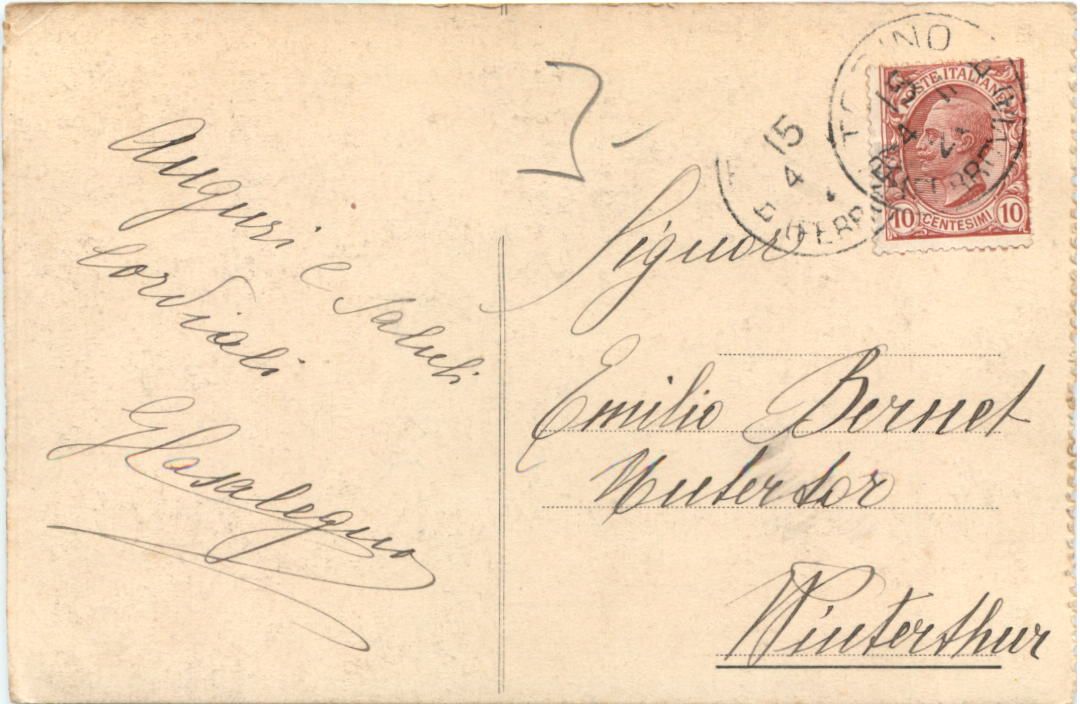 Auguri e Saluti
Cordiali
Signor
Emilio Bernet
Untertor
Winterthur
TORINO
15
4
FERROVIA
15
4
11
POSTE ITALIANE
10 CENTESIMI 10